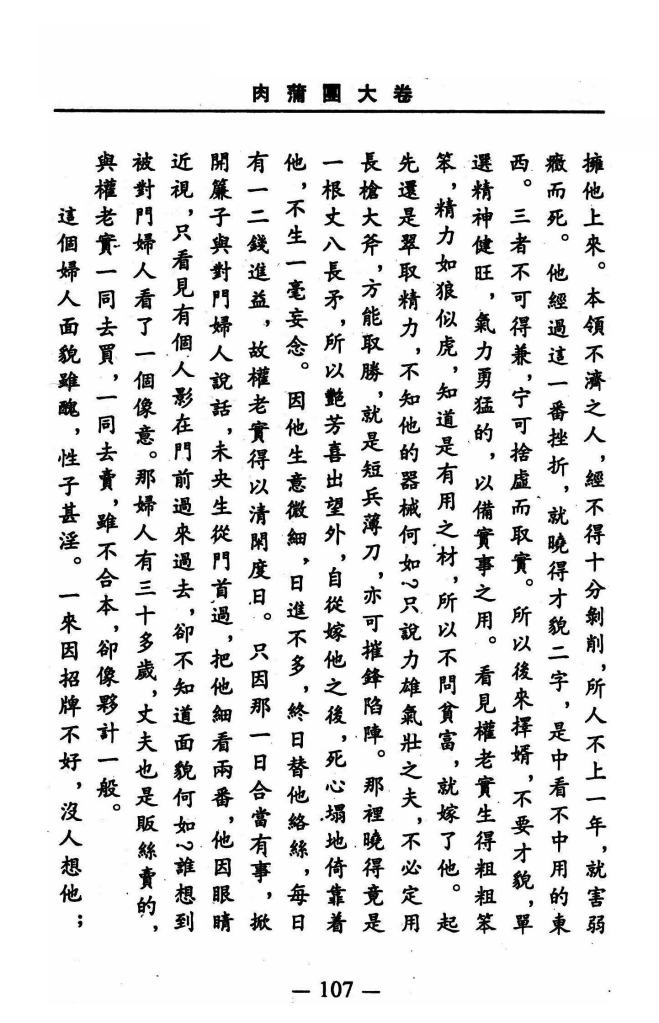 肉蒲團大卷
擁他上來。本領不濟之人，經不得十分剝削，所人不上一年，就害弱
癥而死。他經過這一番挫折，就曉得才貌二字，是中看不中用的東
西。三者不可得兼，宁可捨虛而取實。所以後來擇婿，不要才貌，單
選精神健旺，氣力勇猛的，以備實事之用。看見權老實生得粗粗笨
笨，精力如狼似虎，知道是有用之材，所以不問貧富，就嫁了他。起
先還是翠取精力，不知他的器械何如？只說力雄氣壯之夫，不必定用
長槍大斧，方能取勝，就是短兵薄刀，亦可摧鋒陷陣。那裡曉得竟是
一根丈八長矛，所以艷芳喜出望外，自從嫁他之後，死心塌地倚靠着
他，不生一毫妄念。因他生意微細，日進不多，終日替他絡絲，每日
有一二錢進益，故權老實得以清閑度日。只因那一日合當有事，掀
開簾子與對門婦人說話，未央生從門首過，把他細看兩番，他因眼睛
近視，只看見有個人影在門前過來過去，卻不知道面貌何如？誰想到
被對門婦人看了一個像意。那婦人有三十多歲，丈夫也是販絲賣的，
與權老實一同去買，一同去賣，雖不合本，卻像夥計一般。
這個婦人面貌雖醜，性子甚淫。一來因招牌不好，沒人想他；
— 107 —